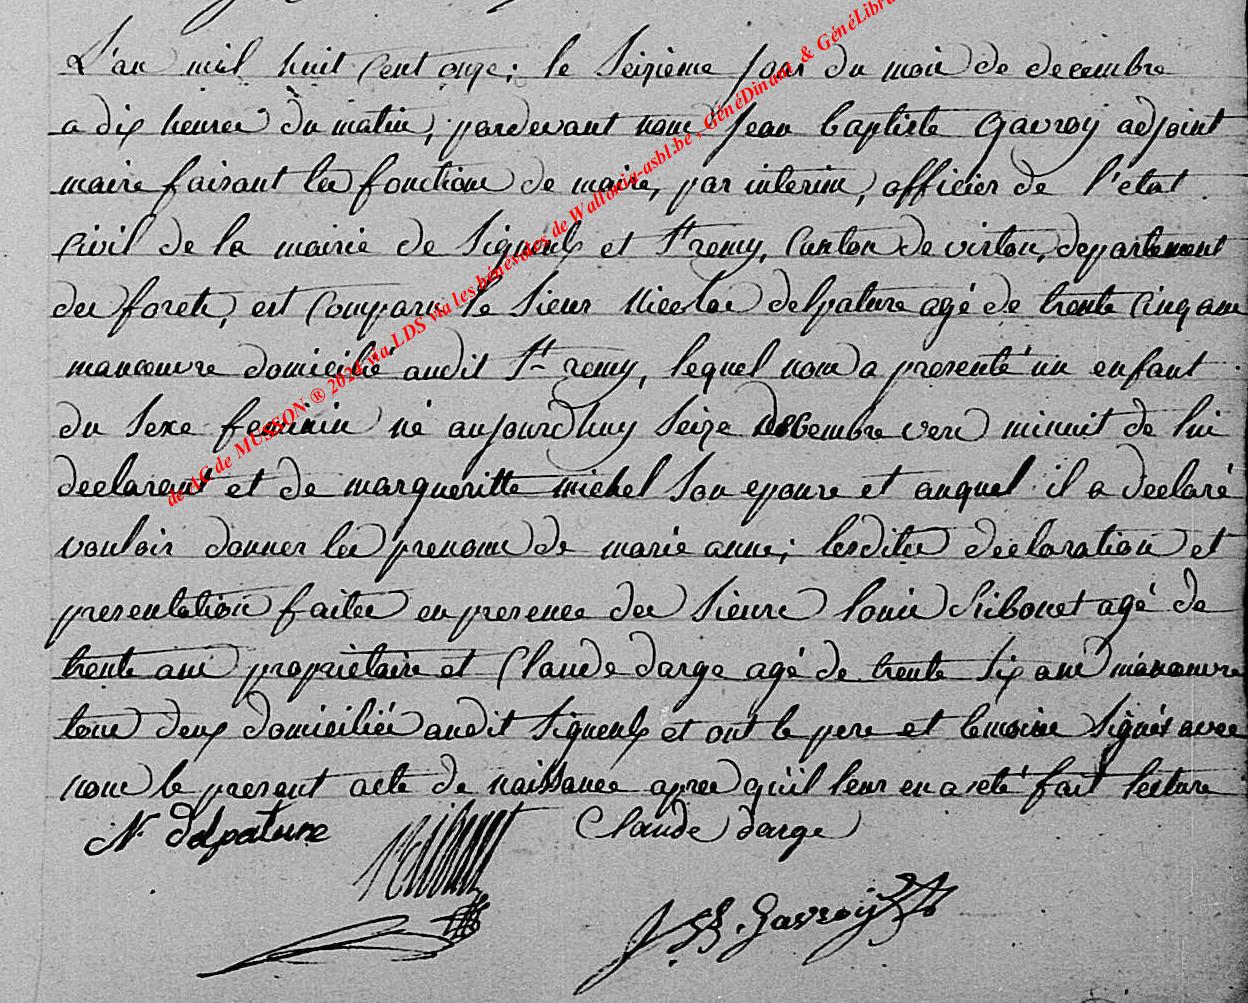 L'an mil huit cent onze; le seizieme jour du mois de decembre
a dix heures du matin, pardevant nous jean baptiste Gavroy adjoint
maire faisant les fonctions de maire, par interim, officier de l'etat
civil de la mairie de Signeulx et St remy, Canton de virton, departement
des forets, est comparu le sieur nicolas delpature agé de trente cinq ans
manoeuvre domicilié audit St remy, lequel nous a presenté un enfant
du sexe feminin né aujourdhuy seize decembre vers minuit de lui
declarant et de margueritte michel son epouse et auquel il a declaré
vouloir donner les prenoms de marie anne; lesdites declaration et
presentation faites en presence des sieurs louis agé de
trente ans proprietaire et Claude darge agé de trente six ans manoeuvre
tous deux domiciliés audit Signeulx et ont le pere et temoins signés avec
nous le present acte de naissance apres qu'il leur en a eté fait lecture
N. Delpature
Claude darge
J. B. Gavroy
de AC de MUSSON ® 2024 via LDS via les bénévoles de Wallonia-asbl.be, GénéDinant & GénéLibra